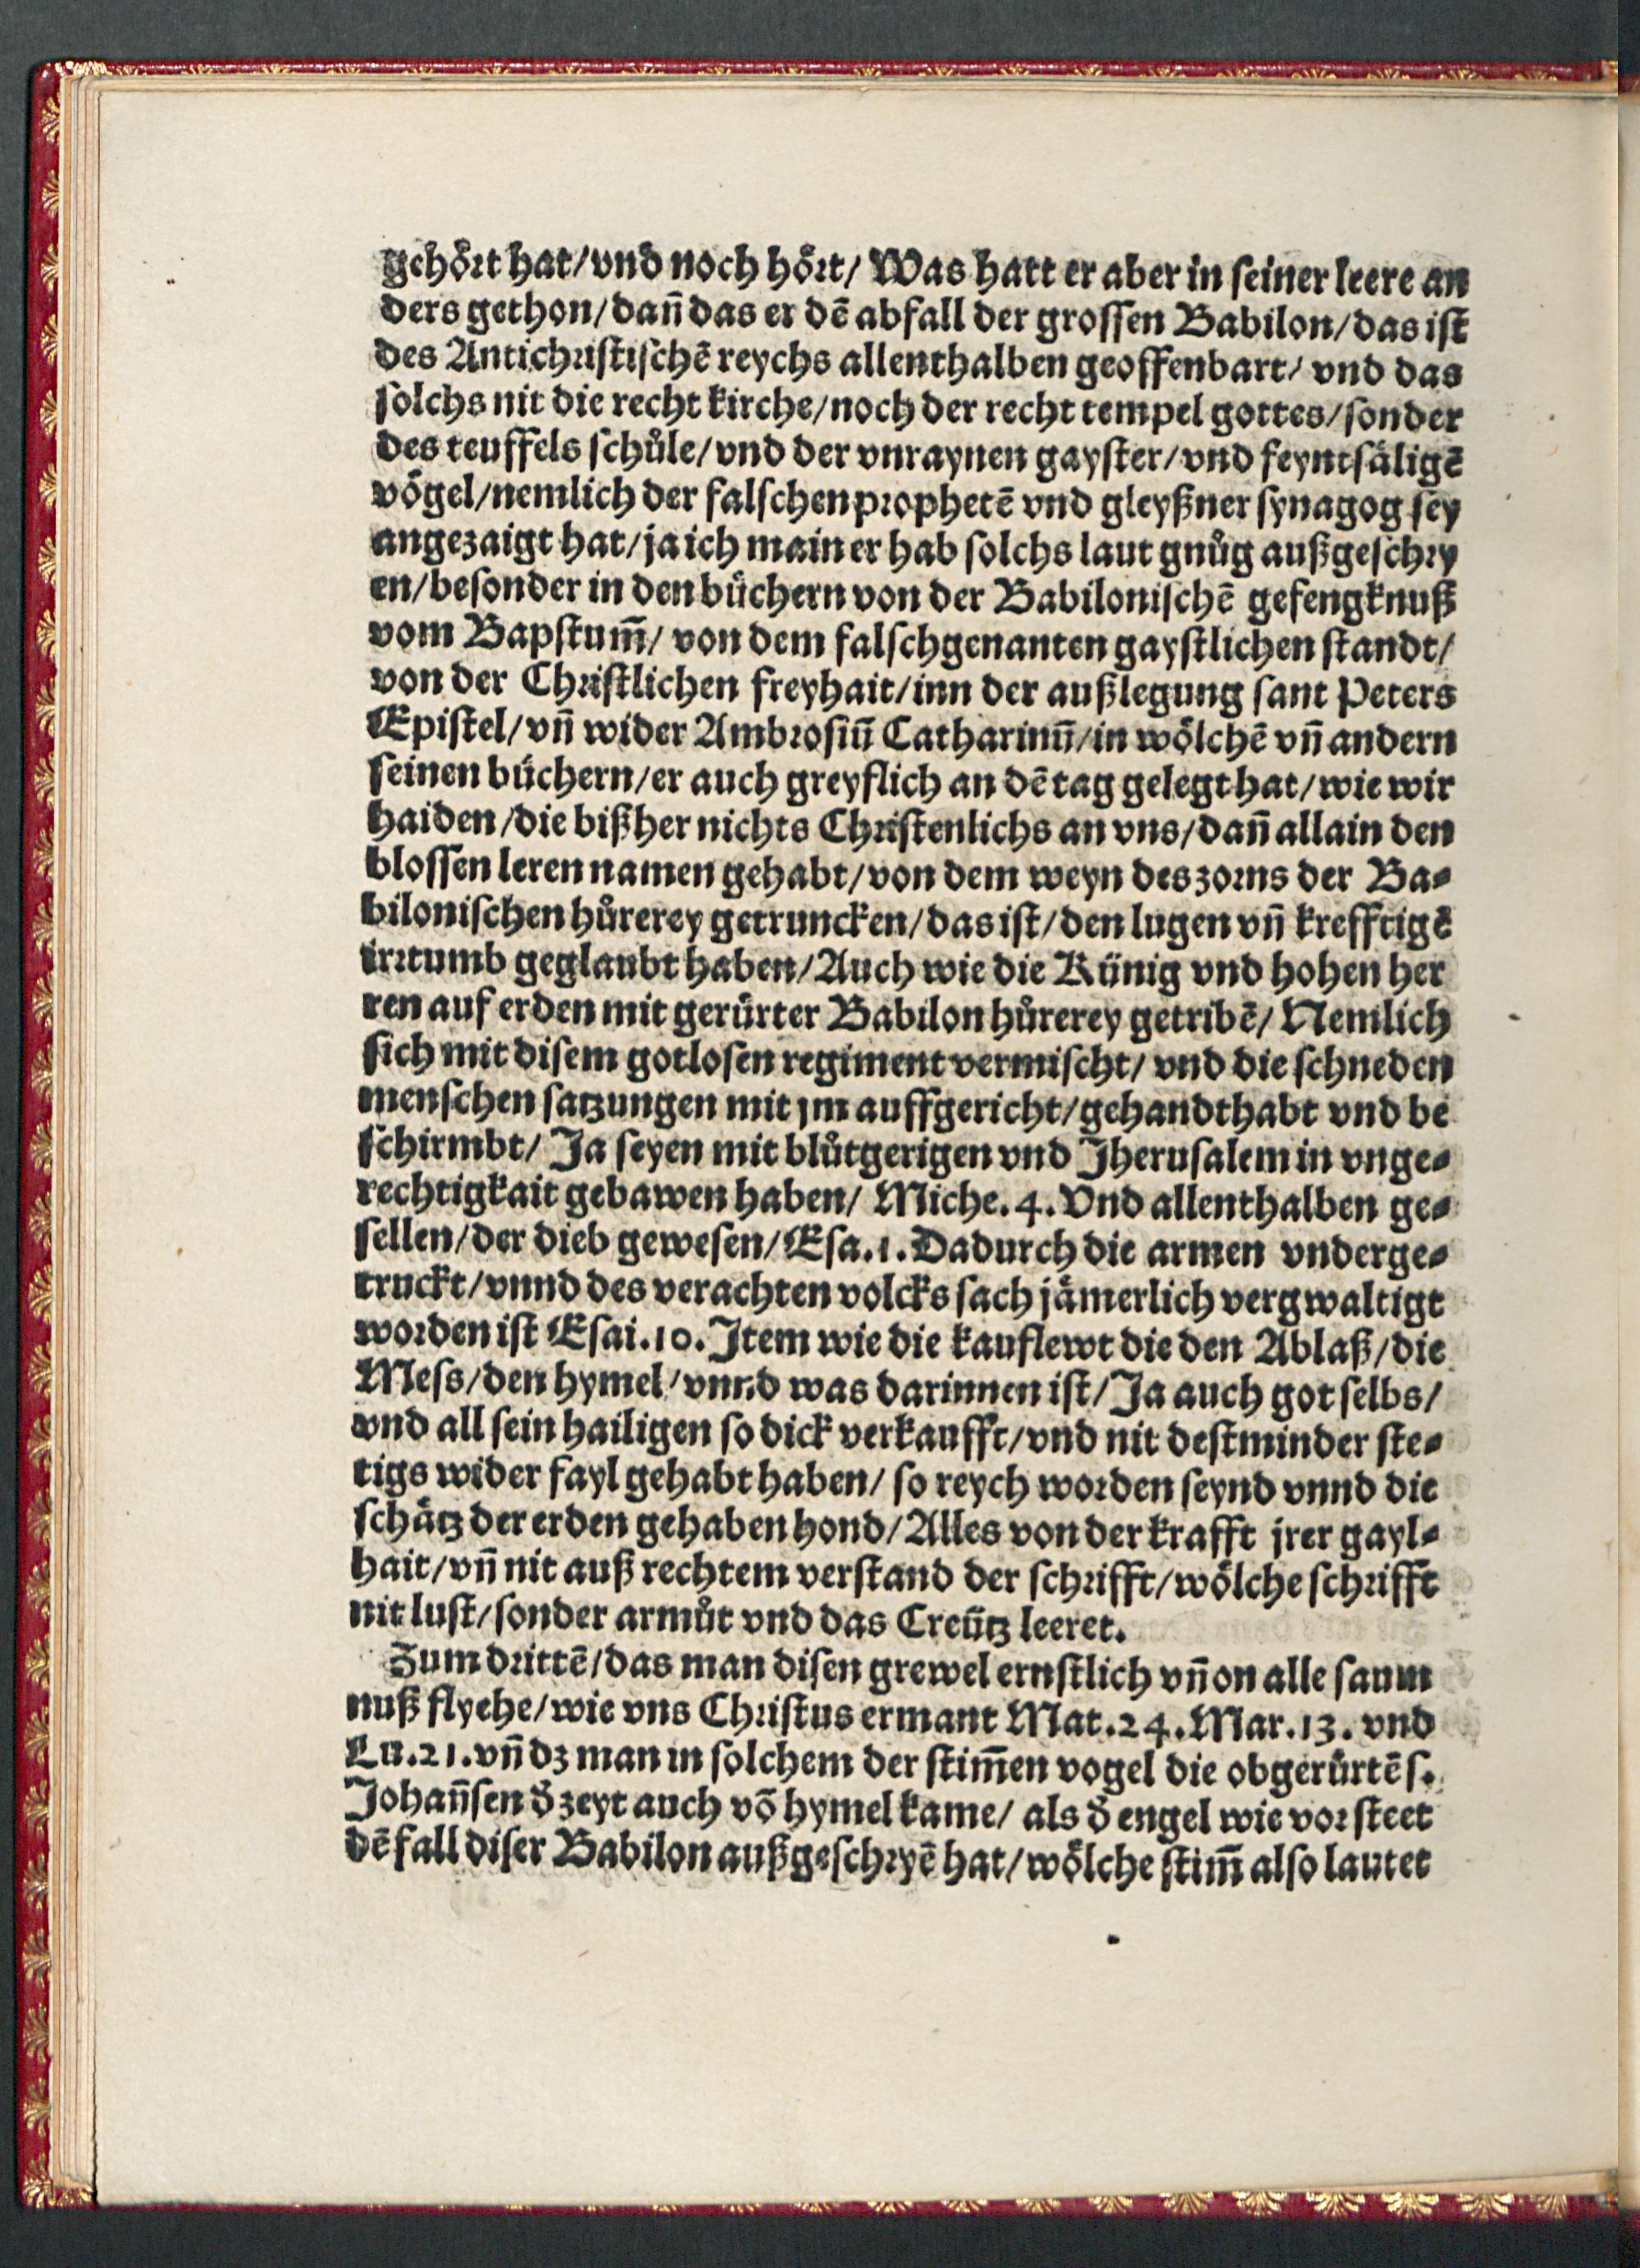 gehoͤrt hat/vnd noch hoͤrt/ Was hatt er aber in seiner leere an
ders gethon/dañ das er dē abfall der grossen Babilon/das ist
des Antichristischē reychs allenthalben geoffenbart/ vnd das
solchs nit die recht kirche/noch der recht tempel gottes/sonder
des teuffels schůle/vnd der vnraynen gayster/vnd feyntsaͤligē
voͤgel/nemlich der falschen prophetē vnd gleyßner synagog sey
angezaigt hat/ja ich main er hab solchs laut gnůg außgeschry
en/besonder in den buͤchern von der Babilonischē gefengknuß
vom Bapstum̃/ von dem falschgenanten gaystlichen standt/
von der Christlichen freyhait/inn der außlegung sant Peters
Epistel/vñ wider Ambrosiũ Catharinũ/in woͤlchē vñ andern
seinen buͤchern/er auch greyflich an dē tag gelegt hat/wie wir
haiden/die bißher nichts Christenlichs an vns/dañ allain den
blossen leren namen gehabt/von dem weyn des zorns der Ba⸗
bilonischen hůrerey getruncken/das ist/den lugen vñ krefftigē
irrtumb geglaubt haben/Auch wie die Künig vnd hohen her
ren auf erden mit geruͤrter Babilon hůrerey getribē/ Nemlich
sich mit disem gotlosen regiment vermischt/ vnd die schneden
menschen satzungen mit jm auffgericht/gehandthabt vnd be
schirmbt/ Ja seyen mit blůtgerigen vnd Jherusalem in vnge⸗
rechtigkait gebawen haben/ Miche.4. Vnd allenthalben ge⸗
sellen/der dieb gewesen/Esa.1. Dadurch die armen vnderge⸗
truckt/vnnd des verachten volcks sach jaͤmerlich vergwaltigt
worden ist Esai.10. Item wie die kauflewt die den Ablaß/die
Mess/den hymel/vnnd was darinnen ist/Ja auch got selbs/
vnd all sein hailigen so dick verkaufft/vnd nit destminder ste⸗
tigs wider fayl gehabt haben/ so reych worden seynd vnnd die
schaͤtz der erden gehaben hond/Alles von der krafft jrer gayl⸗
hait/vñ nit auß rechtem verstand der schrifft/woͤlche schrifft
nit lust/sonder armůt vnd das Creütz leeret.
Zum drittē/das man disen grewel ernstlich vñ on alle saum
nuß flyehe/wie vns Christus ermant Mat.24. Mar.13. vnd
Lu.21. vñ dz man in solchem der stim̃en vogel die obgeruͤrtē s.
Johañsen ð zeyt auch võ hymel kame/ als ð engel wie vor steet
dē fall diser Babilon außgeschryē hat/woͤlche stim̃ also lautet